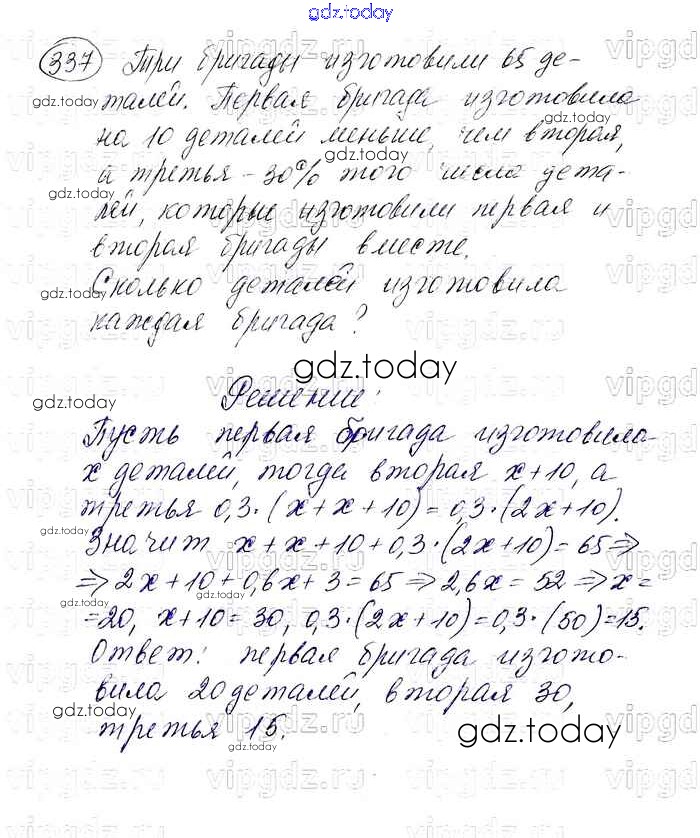 gdz.today
337 Три бригады изготовили 65 де-
талей. Первая бригада изготовила
gdz.today
на 10 деталей меньше, чем вторая,
gdz.today
а третья - 30% того числа дета-
gdz.today
лей, которые изготовили первая и
вторая бригады вместе.
Сколько деталей изготовила
gdz.today
каждая бригада?
gdz.today
Решение:
gdz.today
Пусть первая бригада изготовила
x деталей, тогда вторая x+10, а
третья 0,3·(x+x+10)=0,3·(2x+10).
gdz.today
Значит x+x+10+0,3·(2x+10)=65⇒
⇒2x+10+0,6x+3=65⇒2,6x=52⇒x=
gdz.today
=20, x+10=30, 0,3·(2x+10)=0,3·(50)=15.
Ответ: первая бригада изгото-
вила 20 деталей, вторая 30,
gdz.today
третья 15.
gdz.today
gdz.today
vipgdz.ru